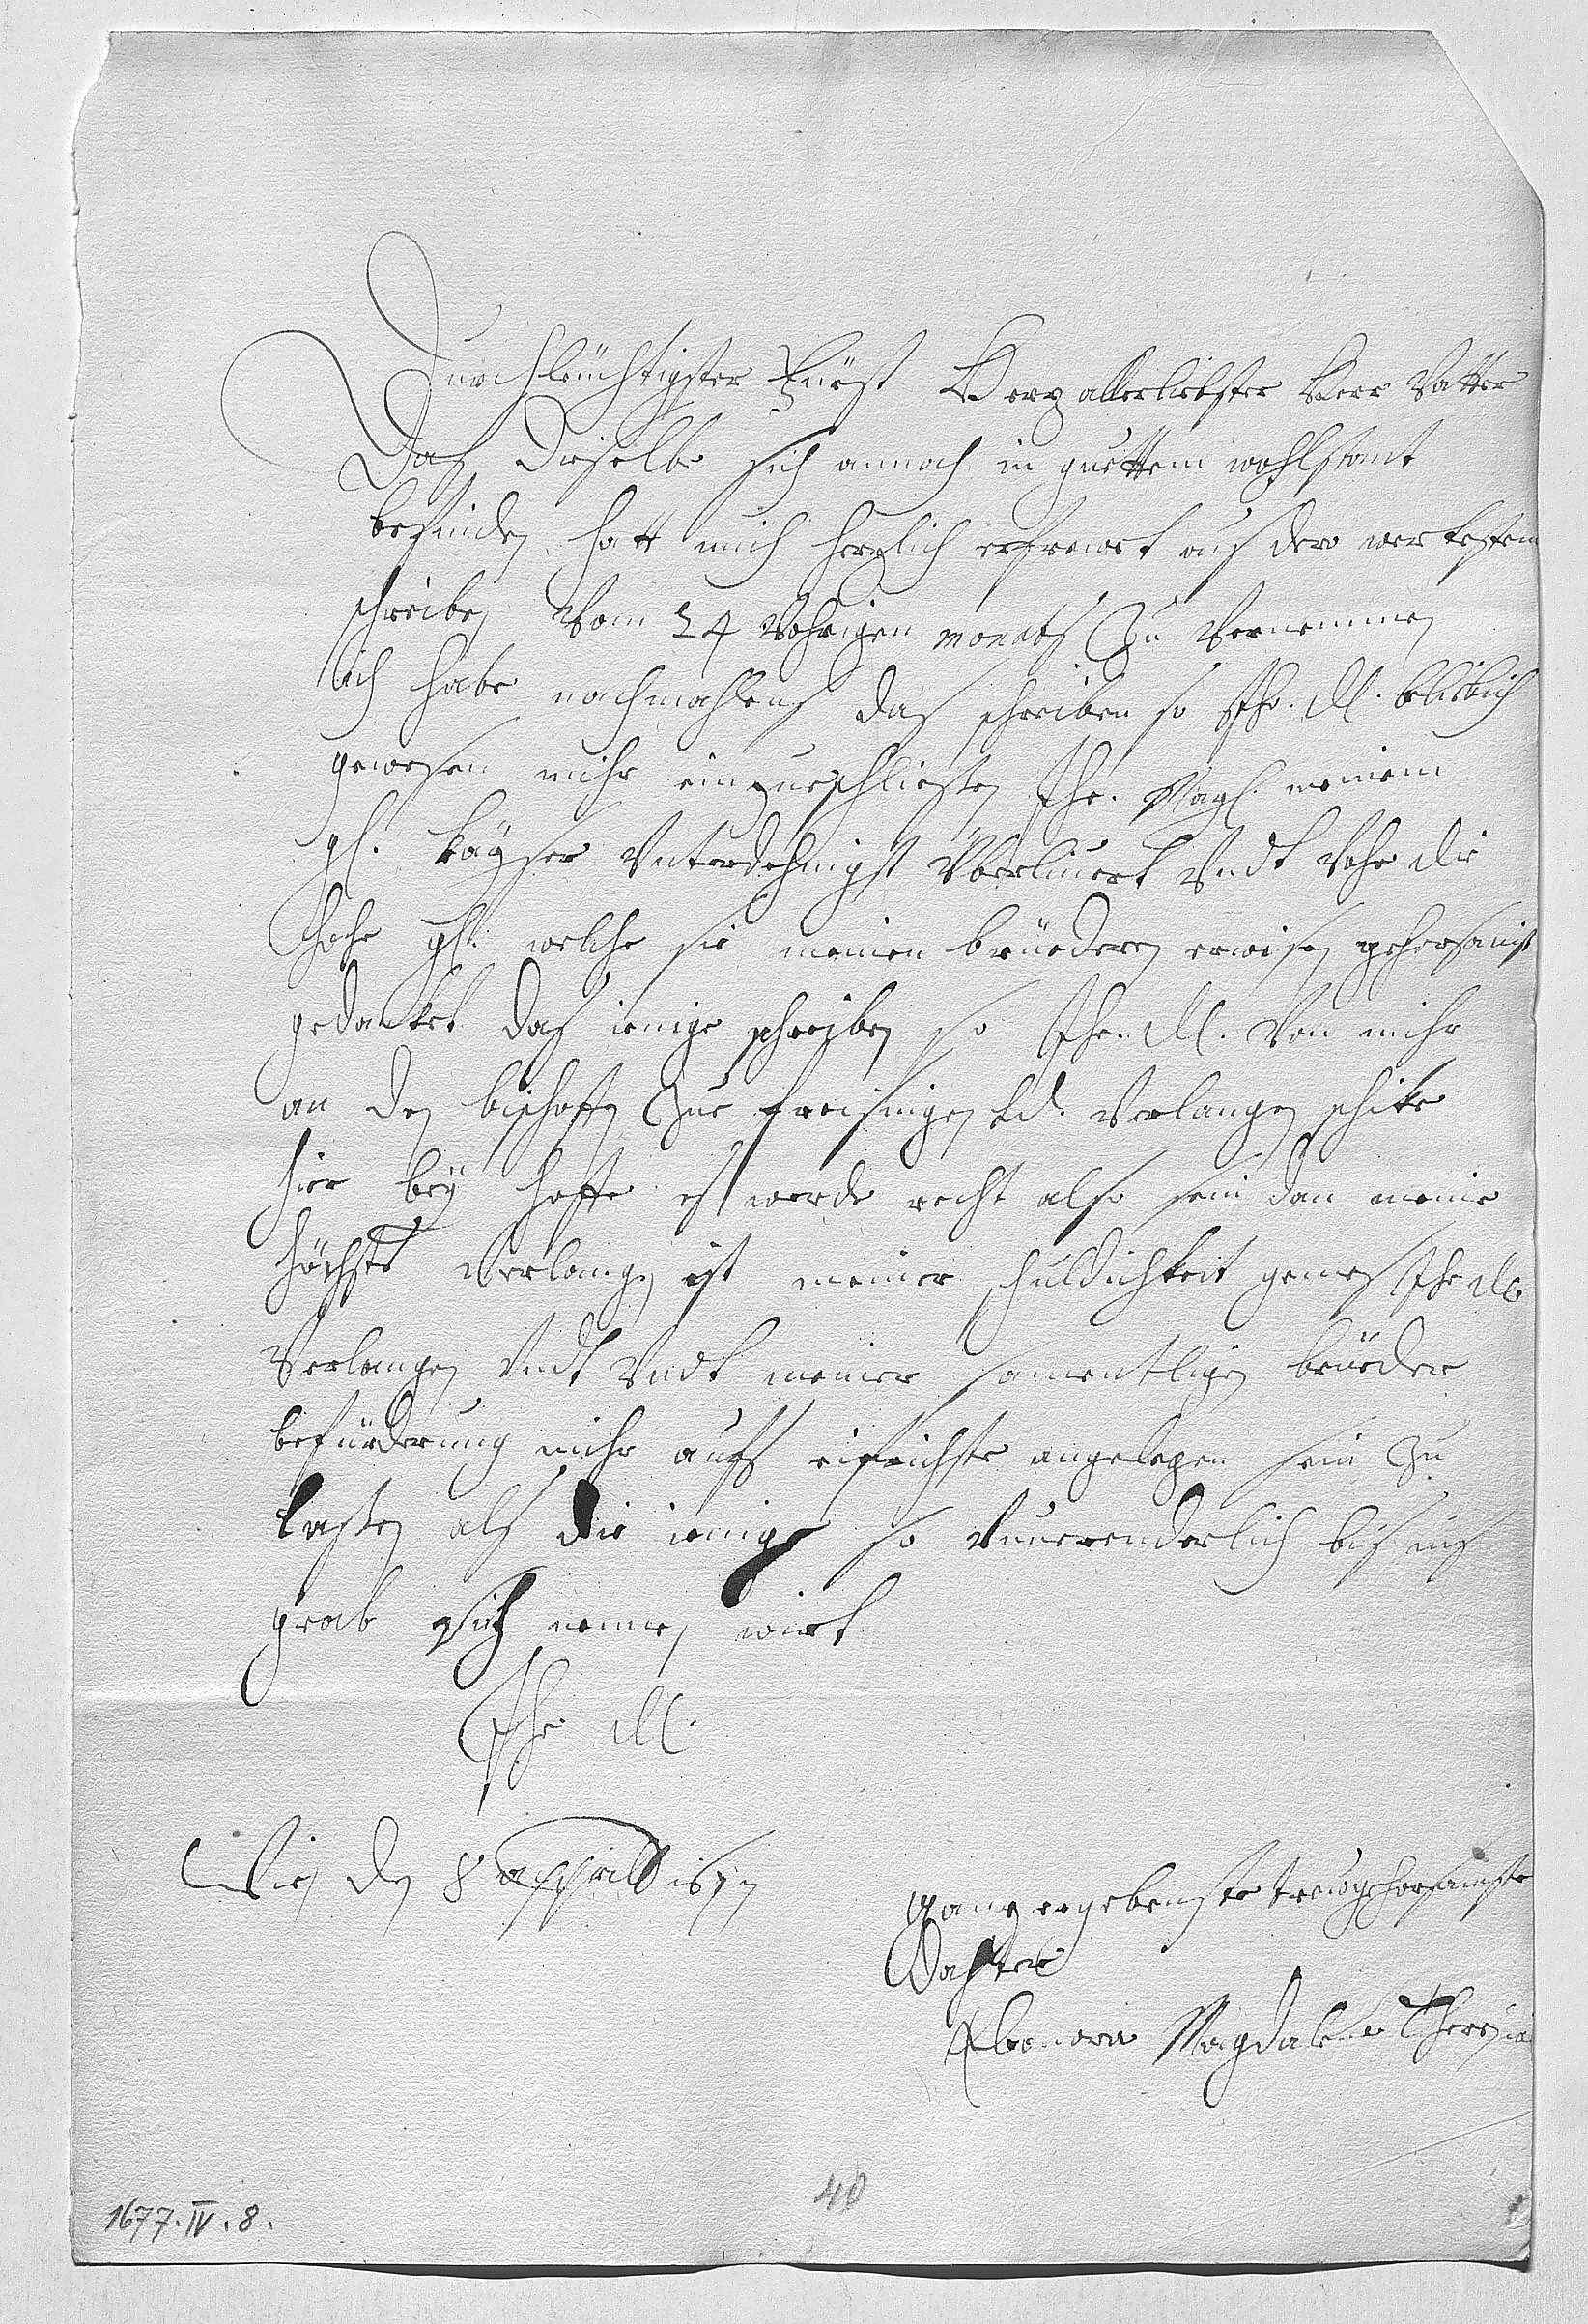 Durchleüchtigster Fürst Herz allerliebster Herr Vatter
Das Dieselbe sich annoch in guettem wohlstant
befinden hatt mich herzlich erfrewet aus dero wertestem
schreiben Vom 24 Vohrigen monats Zu Vernemmen
ich habe nachmahlens das schreiben so Ihr. Dl. beliebich
gewesen mihr einzueschliesten Ihr. Mayl. meinem
gl. kayser Unterdehnigst Überliuert Undt Vohr die
hohe gl. welche sie meinen brüederen erwisen gehorsamst
gedancket das ienige schreiben so Ihr. Dl. Von mihr
an den bischoffen Zue freisingen Ld. Verlangen schike
hier bey hoffe es werde recht also sein dan meine
höchstes Verlangen ist meiner schuldichkeit gemes Ihr Dl
Verlangen Undt Undt meiner samentligen brüeder
befürderung mihr aufs eifrichste angelegen sein Zu
lasten als die ienige so Vnuerenderlich bis ins
grab sich nennen wirt
Ihr Dl.
Wien den 8 appril 1677
ganz ergebenste trewgehorsamste
Dochter
Eleonora Magdalena Theresia
40
1677.IV.8.